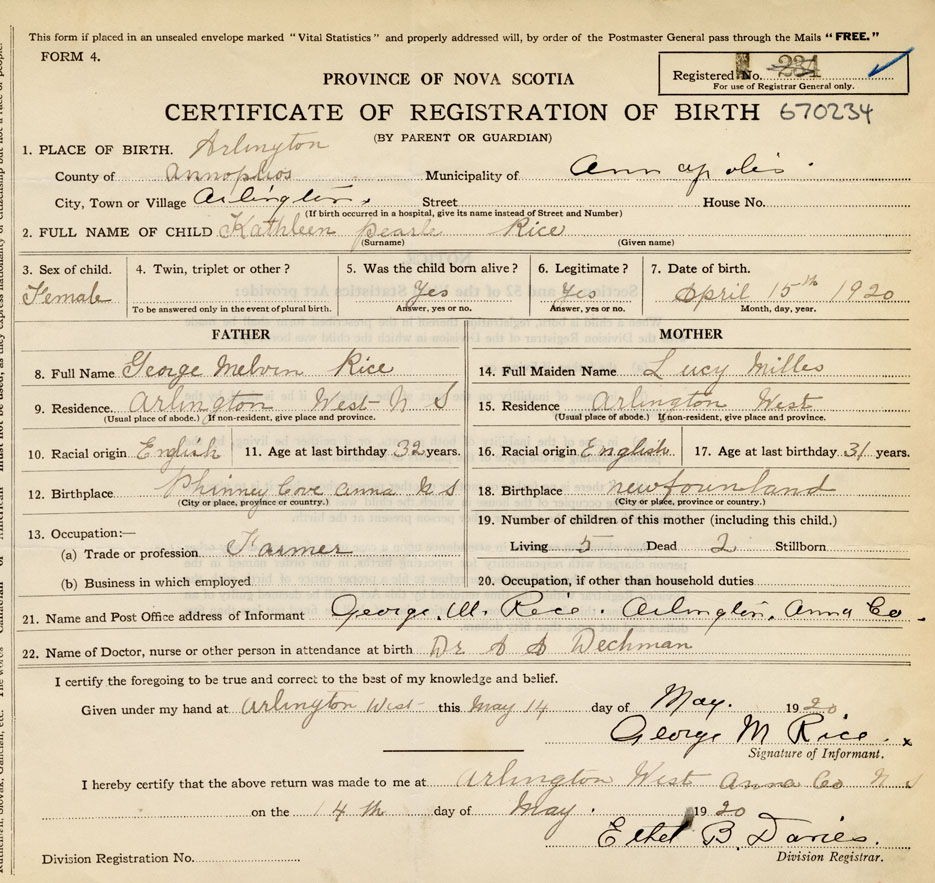 This form if placed in an unsealed envelope marked "Vital Statistics" and properly addressed will, by order of the Postmaster General pass through the Mails "FREE."
FORM 4.
PROVINCE OF NOVA SCOTIA
Registered No. 234
For use of Registrar General only.
CERTIFICATE OF REGISTRATION OF BIRTH 670234
(BY PARENT OR GUARDIAN)
1. PLACE OF BIRTH. Arlington
County of Annoplios Municipality of Annapolis
City, Town or Village Arlington. Street House No.
(If birth occurred in a hospital, give its name instead of Street and Number)
2. FULL NAME OF CHILD Kathleen pearle Rice
(Surname) (Given name)
3. Sex of child. 4. Twin, triplet or other? 5. Was the child born alive? 6. Legitimate? 7. Date of birth.
Female Yes Yes April 15th 1920
To be answered only in the event of plural birth. Answer, yes or no. Answer, yes or no. Month, day, year.
FATHER MOTHER
8. Full Name George Melvin Rice 14. Full Maiden Name Lucy Milles
9. Residence. Arlington West N S 15. Residence Arlington West
(Usual place of abode.) If non-resident, give place and province. (Usual place of abode.) If non-resident, give place and province.
10. Racial origin English 11. Age at last birthday 32 years. 16. Racial origin English 17. Age at last birthday 31 years.
12. Birthplace Phinney Cove Anna N S 18. Birthplace newfounland
(City or place, province or country.) (City or place, province or country.)
13. Occupation:— 19. Number of children of this mother (including this child.)
(a) Trade or profession Farmer Living 5 Dead 2 Stillborn
(b) Business in which employed 20. Occupation, if other than household duties
21. Name and Post Office address of Informant George. M. Rice. Arlington, Anna Co
22. Name of Doctor, nurse or other person in attendance at birth Dr Dechman
I certify the foregoing to be true and correct to the best of my knowledge and belief.
Given under my hand at Arlington West this May 14 day of May. 1920
George M Rice. x
Signature of Informant.
I hereby certify that the above return was made to me at Arlington West Anna Co N S
on the 14 th day of May. 1920
Ethel B. Davies.
Division Registrar.
Division Registration No.